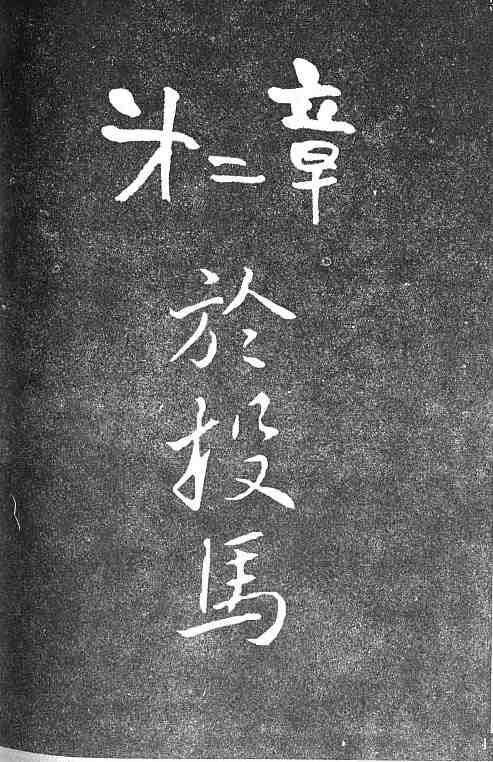 第二章
於投馬